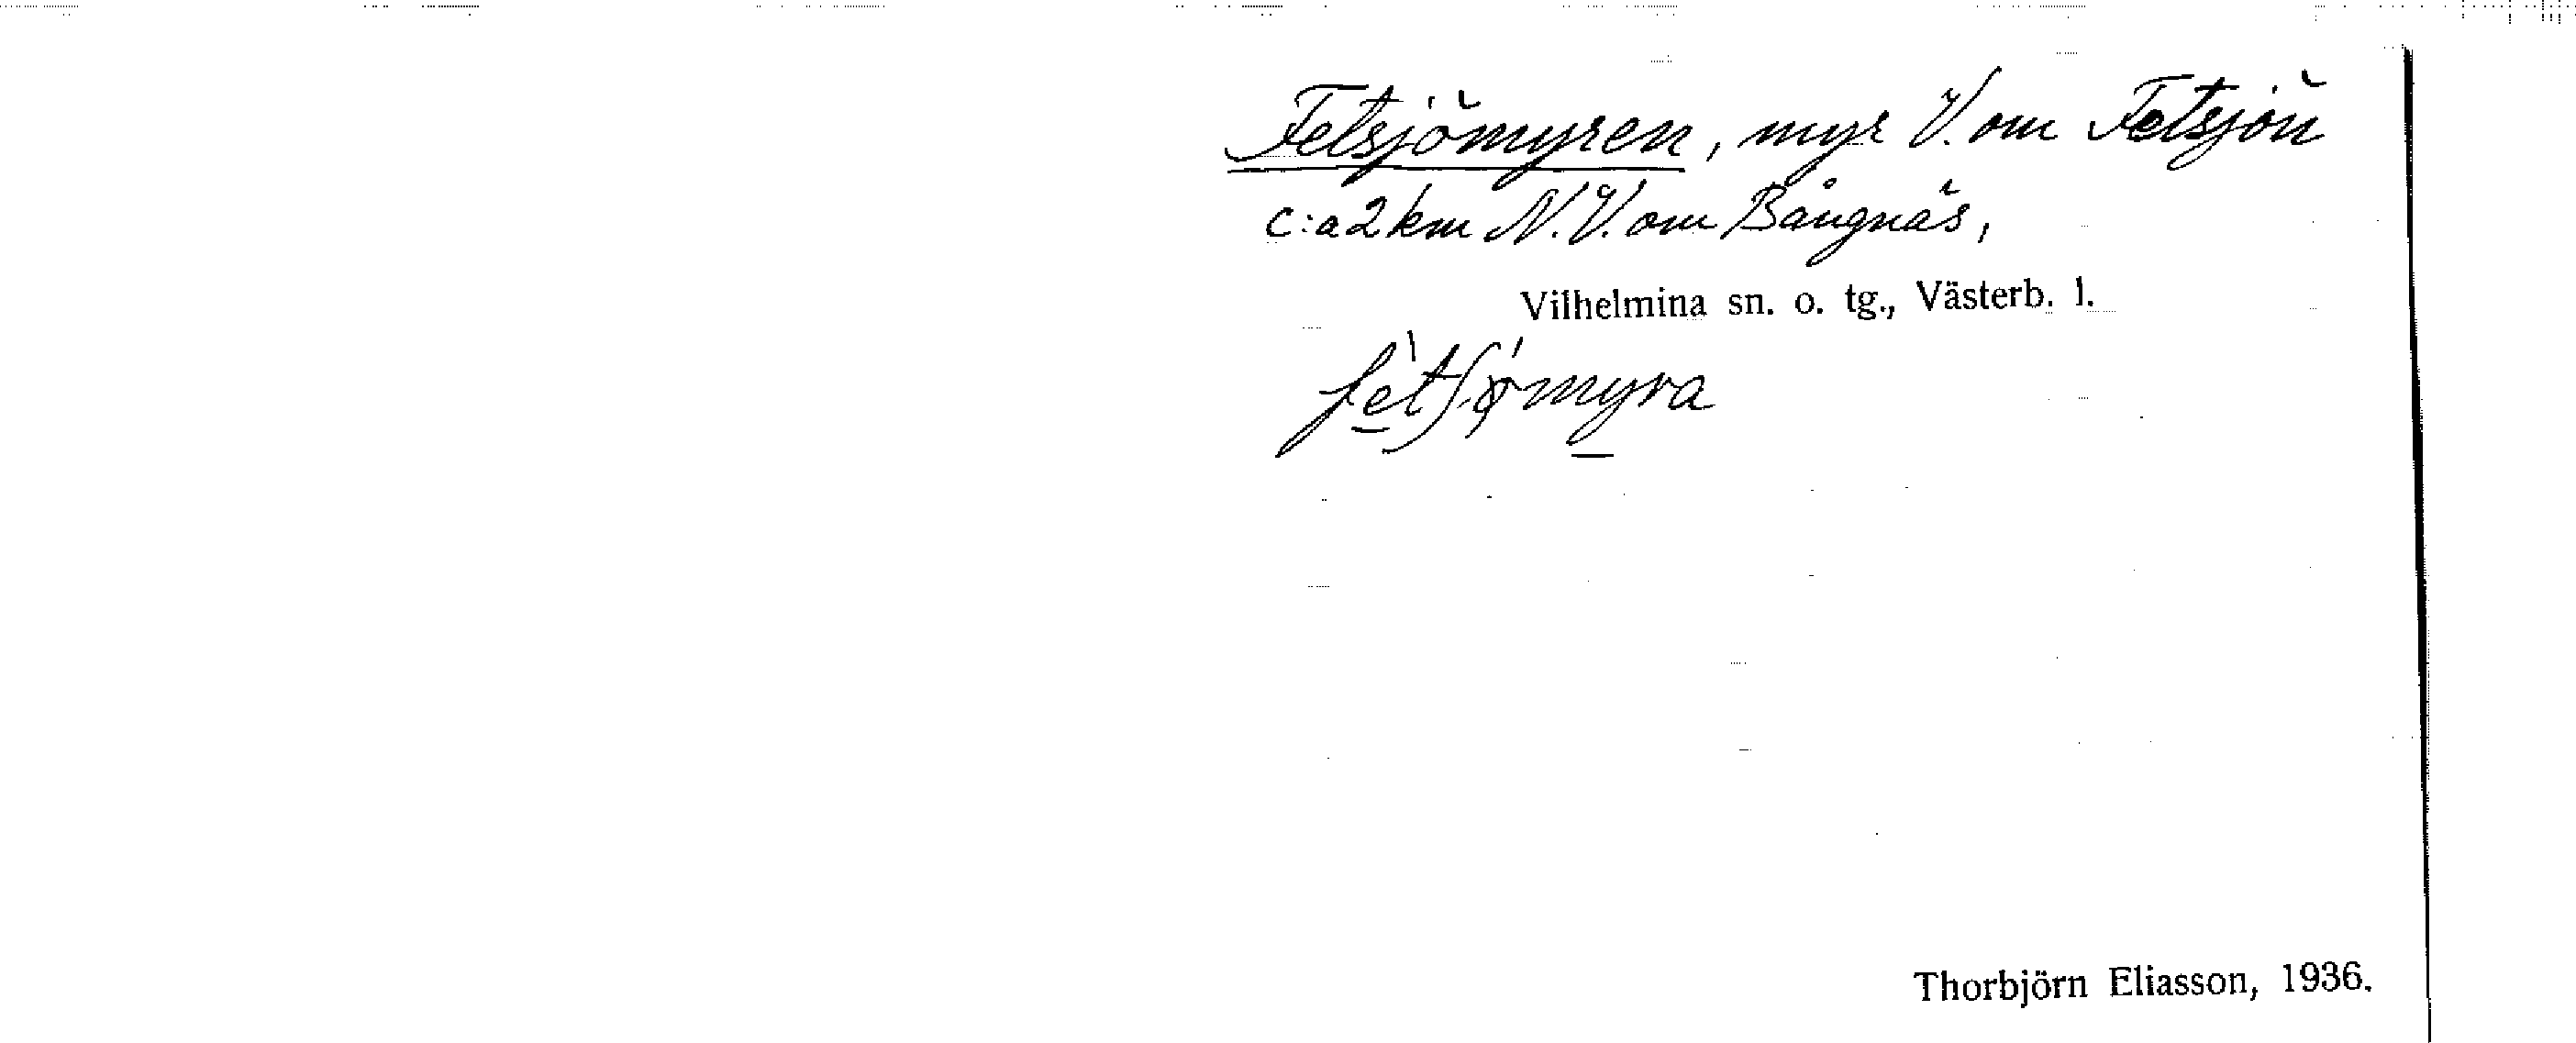 Fetsjömyren, myr V. om Fetsjön
c:a 2 km N.V. om Bångnäs,
Vilhelmina sn. o. tg., Västerb. l.
fè̱tʃǿmy̱ra
Thorbjörn Eliasson, 1936.